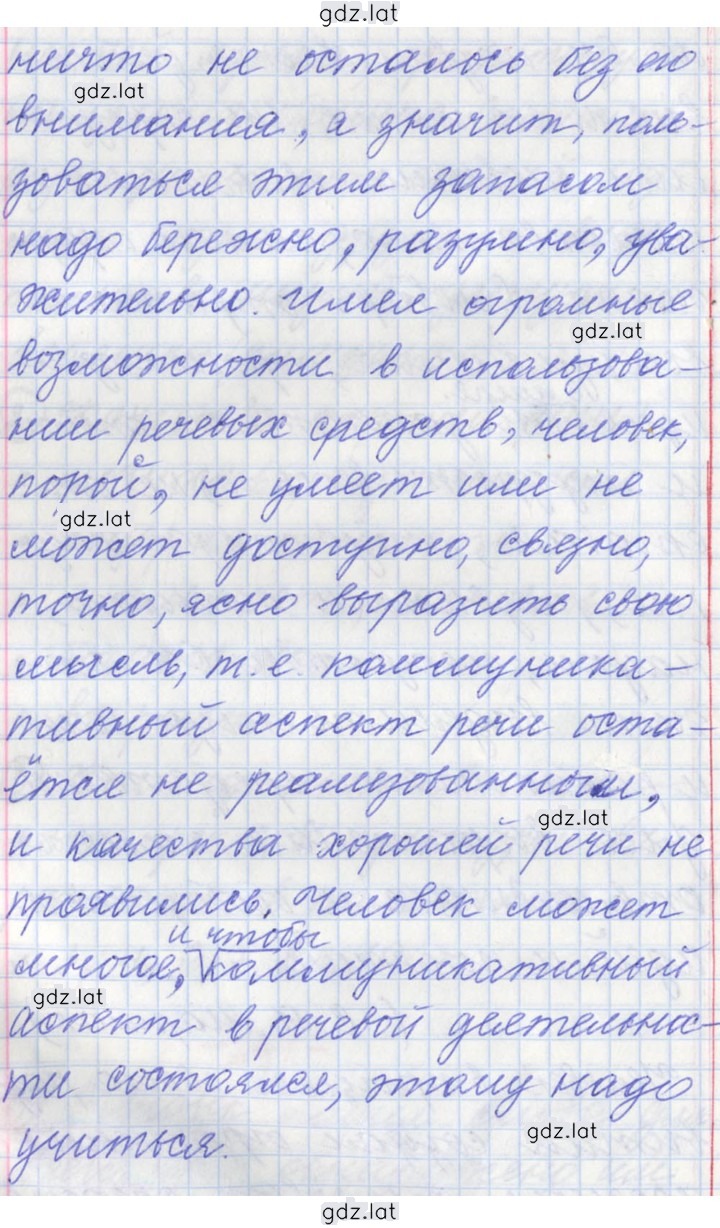 gdz.lat
ничто не осталось без его
gdz.lat
внимания, а значит, поль-
зоваться этим запасом
надо бережно, разумно, ува-
жительно. Имея огромные
gdz.lat
возможности в использова-
нии речевых средств, человек,
порой, не умеет или не
gdz.lat
может доступно, связно,
точно, ясно выразить свою
мысль, т.е. коммуника-
тивный аспект речи оста-
ётся не реализованным,
gdz.lat
и качества хорошей речи не
проявились. Человек может
и чтобы
многое, коммуникативный
gdz.lat
аспект в речевой деятельнос-
ти состоялся, этому надо
gdz.lat
учиться.
gdz.lat